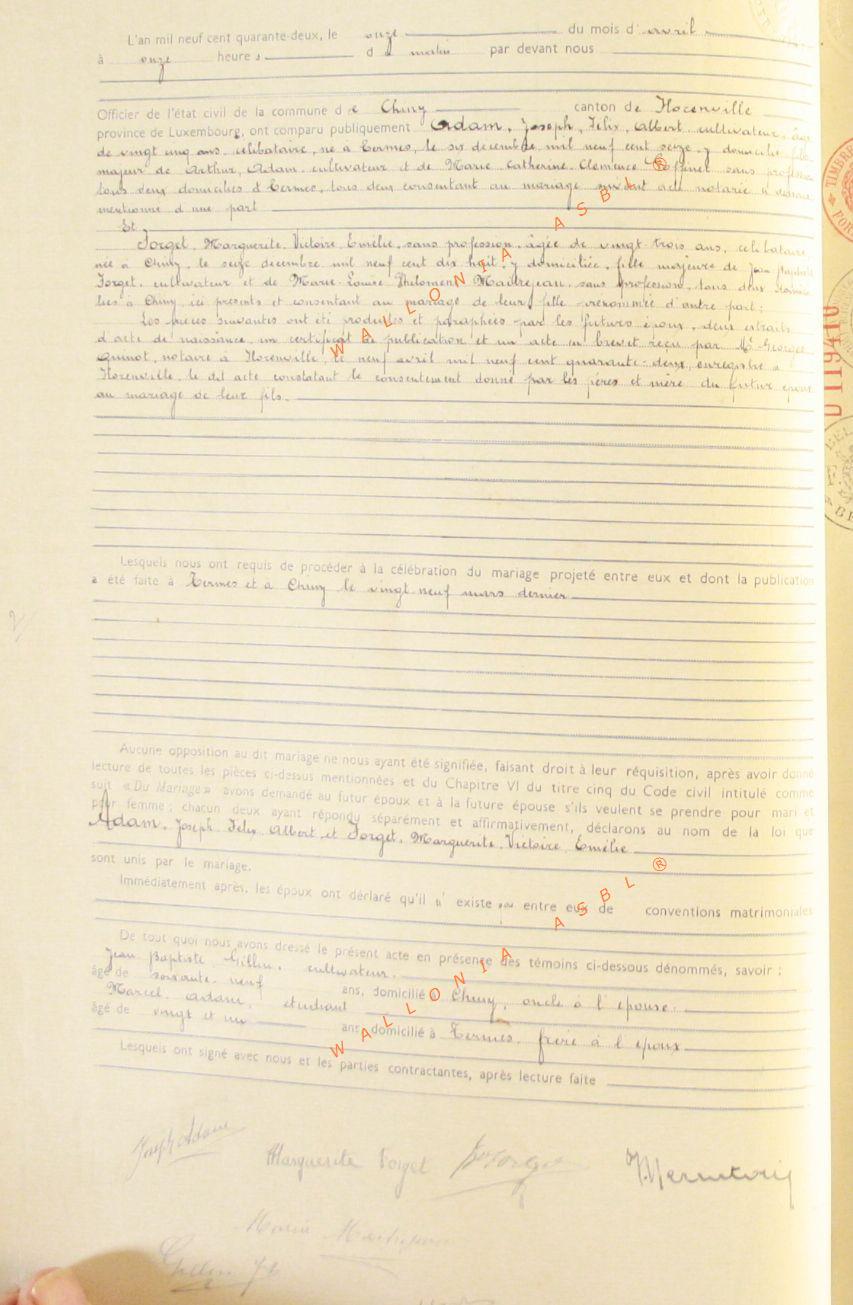 L'an mil neuf cent quarante-deux, le onze du mois d'avril
à onze heures du matin par devant nous
Officier de l'état civil de la commune de Chiny canton de Florenville
province de Luxembourg, ont comparu publiquement Adam, Joseph, Félix, Albert cultivateur, âgé
de vingt cinq ans, célibataire, né à Termes, le six décembre mil neuf cent seize, y domicilié, fils
majeur de Arthur, Adam, cultivateur et de Marie Catherine Clémence sans profession
tous deux domiciliés à Termes, tous deux consentant au mariage suivant acte notarié ci dessous
mentionné d'une part
Et
Forget, Marguerite, Victoire, Emélie, sans profession, âgée de vingt trois ans, célibataire,
née à Chiny, le seize décembre mil neuf cent dix huit, y domiciliée, fille majeure de Jean Baptiste
Forget, cultivateur et de Marie Louise Philomène sans profession, tous deux domici-
liés à Chiny, ici présents et consentant au mariage de leur fille prénommée d'autre part:
Les pièces suivantes ont été produites et paraphées par les futurs époux, deux extraits
d'acte de naissance, un certificat de publication et un acte en brevet reçu par Me Georges
notaire à Florenville, le neuf avril mil neuf cent quarante-deux, enregistré à
Florenville, le dit acte constatant le consentement donné par les pères et mère du futur époux
au mariage de leur fils.
Lesquels nous ont requis de procéder à la célébration du mariage projeté entre eux et dont la publication
a été faite à Termes et à Chiny le vingt-neuf mars dernier
Aucune opposition au dit mariage ne nous ayant été signifiée, faisant droit à leur réquisition, après avoir donné
lecture de toutes les pièces ci-dessus mentionnées et du Chapitre VI du titre cinq du Code civil intitulé comme
suit « Du Mariage » avons demandé au futur époux et à la future épouse s'ils veulent se prendre pour mari et
pour femme ; chacun deux ayant répondu séparément et affirmativement, déclarons au nom de la loi que
Adam, Joseph Félix Albert et Forget, Marguerite, Victoire, Emélie
sont unis par le mariage.
Immédiatement après, les époux ont déclaré qu'il n'existe pas entre eux de conventions matrimoniales
De tout quoi nous avons dressé le présent acte en présence des témoins ci-dessous dénommés, savoir :
Jean Baptiste Gillin, cultivateur.
âgé de soixante neuf ans, domicilié à Chiny, oncle à l'épouse.
Marcel Adam, étudiant
âgé de vingt et un ans, domicilié à Termes, frère à l'époux
Lesquels ont signé avec nous et les parties contractantes, après lecture faite
Joseph Adam
Marguerite Forget
WALLONIA ASBL ®
WALLONIA ASBL ®
D 119410
TIMBRE